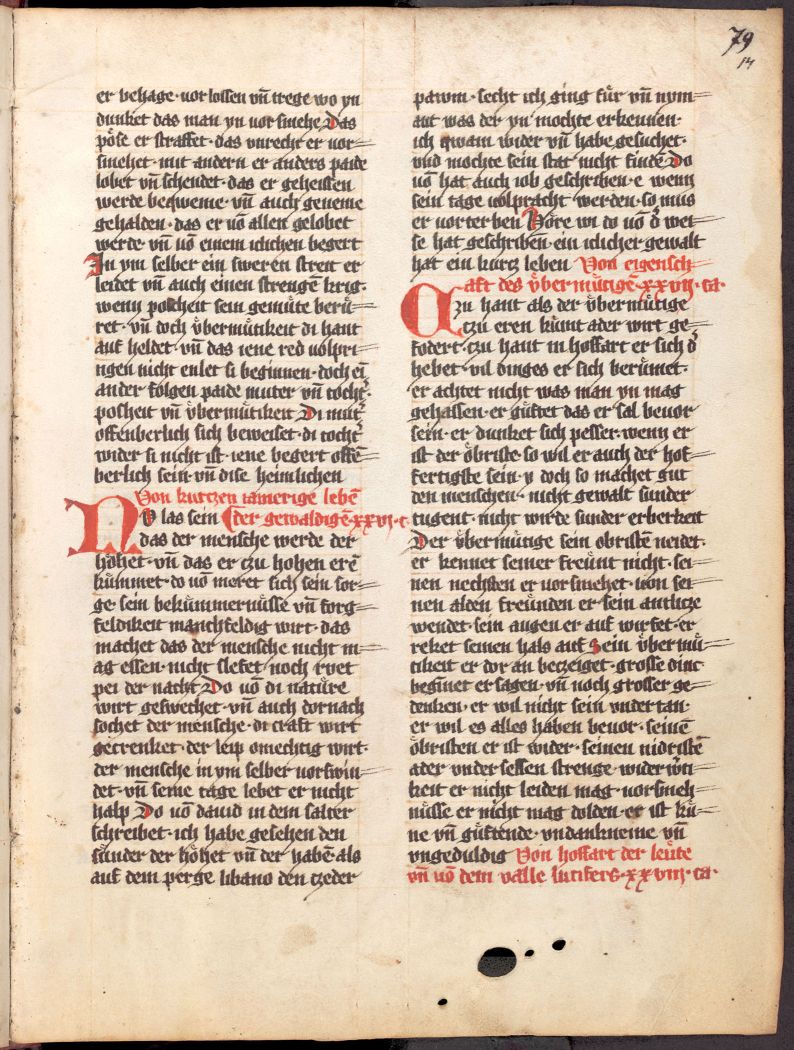 79
14
er behage · vor lossen vn̄ trege wo yn
dunket das man yn vor smehe Das
pöse er straffet · das vnrecht er vor=
smehet · mit andern er anders paide
lobet vn̄ schendet · das er geheissen
werde beqweme · vn̄ auch geneme
gehalden · das er vō allen gelobet
werde · vn̄ vō einem iclichen begert
In ym selber ein sweren streit er
leidet vn̄ auch einen strengē krig ·
wenn posheit sein gemüte berü=
ret · vn̄ doch v̈bermütikeit di hant
auf heldet · vn̄ das iene red volpri=
ngen nicht enlet si beginnen · doch eī
ander folgen paide muter vn̄ tocht͛ ·
posheit vn̄ v̈bermütikeit Di mut͛
offenberlich sich beweiset · di tocht͛
wider si nicht ist · iene begert offē=
berlich sein · vn̄ dise heimlichen
Von kurtzen iamerige lebē
NV las sein ⸿der gewaldigē · xxvi · c ·
das der mensche werde der
höhet · vn̄ das er czu hohen erē
kümmet · do vō meret sich sein sor=
ge · sein bekümmernüsse vn̄ sorg=
feldikeit manchfeldig wirt · das
machet das der mensche nicht m=
ag essen · nicht slefet noch rvet
pei der nacht Do vō di natüre
wirt geswechet · vn̄ auch dornach
sochet der mensche · di craft wirt
gecrenket · der leip omechtig wirt ·
der mensche in ym selber vorswin=
det · vn̄ seine tage lebet er nicht
halp Do vō dauid in dem salter
schreibet · ich habe gesehen den
sünder der höhet vn̄ der haben · als
auf dem perge libano den czeder
pawm · secht ich ging für vn̄ nym=
ant was der yn mochte erkennen ·
ich qwam wider vn̄ habe gesuchet ·
vnd mochte sein stat nicht findē Do
vō hat auch iob geschriben · e wenn
sein tage volpracht werden · so mus
er vorterben Höre wi do vō d͛ wei=
se hat geschriben · ein iclicher gewalt
hat ein kurtz leben Von eigensch=
aft des v̈bermütigē · xxvij · ca ·
Czu hant als der v̈bermütige
czu eren kümt ader wirt ge=
fodert · czu hant in hoffart er sich d͛
hebet · vil dinges er sich berümet ·
er achtet nicht was man yn mag
gehassen · er güftet das er sal bevor
sein · er dunket sich pesser · wenn er
ist der öbriste · so wil er auch der hof=
fertigste sein · y doch so machet gut
den menschen · nicht gewalt sunder
tugent · nicht wirde sunder erberkeit
Der v̈bermütige sein obristen neidet ·
er kennet seiner freünt nicht · sei=
nen nechsten er vorsmehet · von sei=
nen alden freünden er sein antlicze
wendet · sein augen er auf wirfet · er
reket seinen hals auf Sein v̈bermü=
tikeit er dor an beczeiget · grosse dinc
begīnet er sagen · vn̄ noch grosser ge=
denken · er wil nicht sein vndertan ·
er wil es alles haben bevor · seinē
öbristen er ist wider · seinen nidristē
ader vndersessen strenge · widerw̄ti=
keit er nicht leiden mag · vorsmeh=
nüsse er nicht mag dolden · er ist kü=
ne vn̄ güftende · vndankneme vn̄
vngeduldig Von hoffart der leüte
vn̄ vō dem valle lucifers · xxviij · ca ·